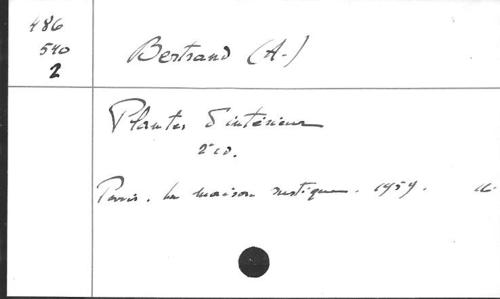 486
540
2
Bertrand (A.)
Plantes d'intérieur
2e éd.
Paris. La maison rustique. 1959.